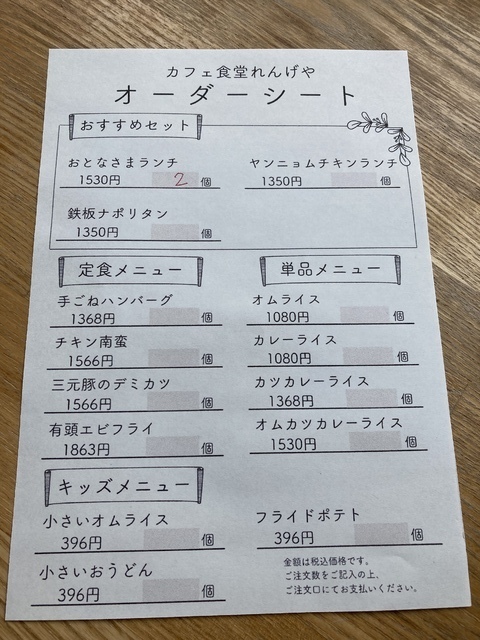 カフェ食堂れんげや
オーダーシート
おすすめセット
おとなさまランチ
1530円 2 個
ヤンニョムチキンランチ
1350円 個
鉄板ナポリタン
1350円 個
定食メニュー
手ごねハンバーグ
1368円 個
チキン南蛮
1566円 個
三元豚のデミカツ
1566円 個
有頭エビフライ
1863円 個
単品メニュー
オムライス
1080円 個
カレーライス
1080円 個
カツカレーライス
1368円 個
オムカツカレーライス
1530円 個
キッズメニュー
小さいオムライス
396円 個
フライドポテト
396円 個
小さいおうどん
396円 個
金額は税込価格です。
ご注文数をご記入の上、
ご注文口にてお支払いください。